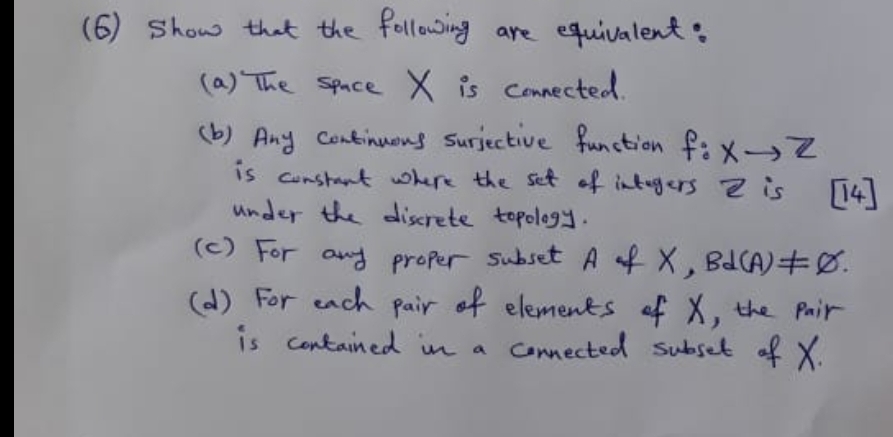 (6) Show that the following are equivalent :
(a) The space X is connected.
(b) Any continuous surjective function f: X → Z
is constant where the set of integers Z is [14]
under the discrete topology.
(c) For any proper subset A of X, Bd(A) ≠ Ø.
(d) For each pair of elements of X, the pair
is contained in a connected subset of X.